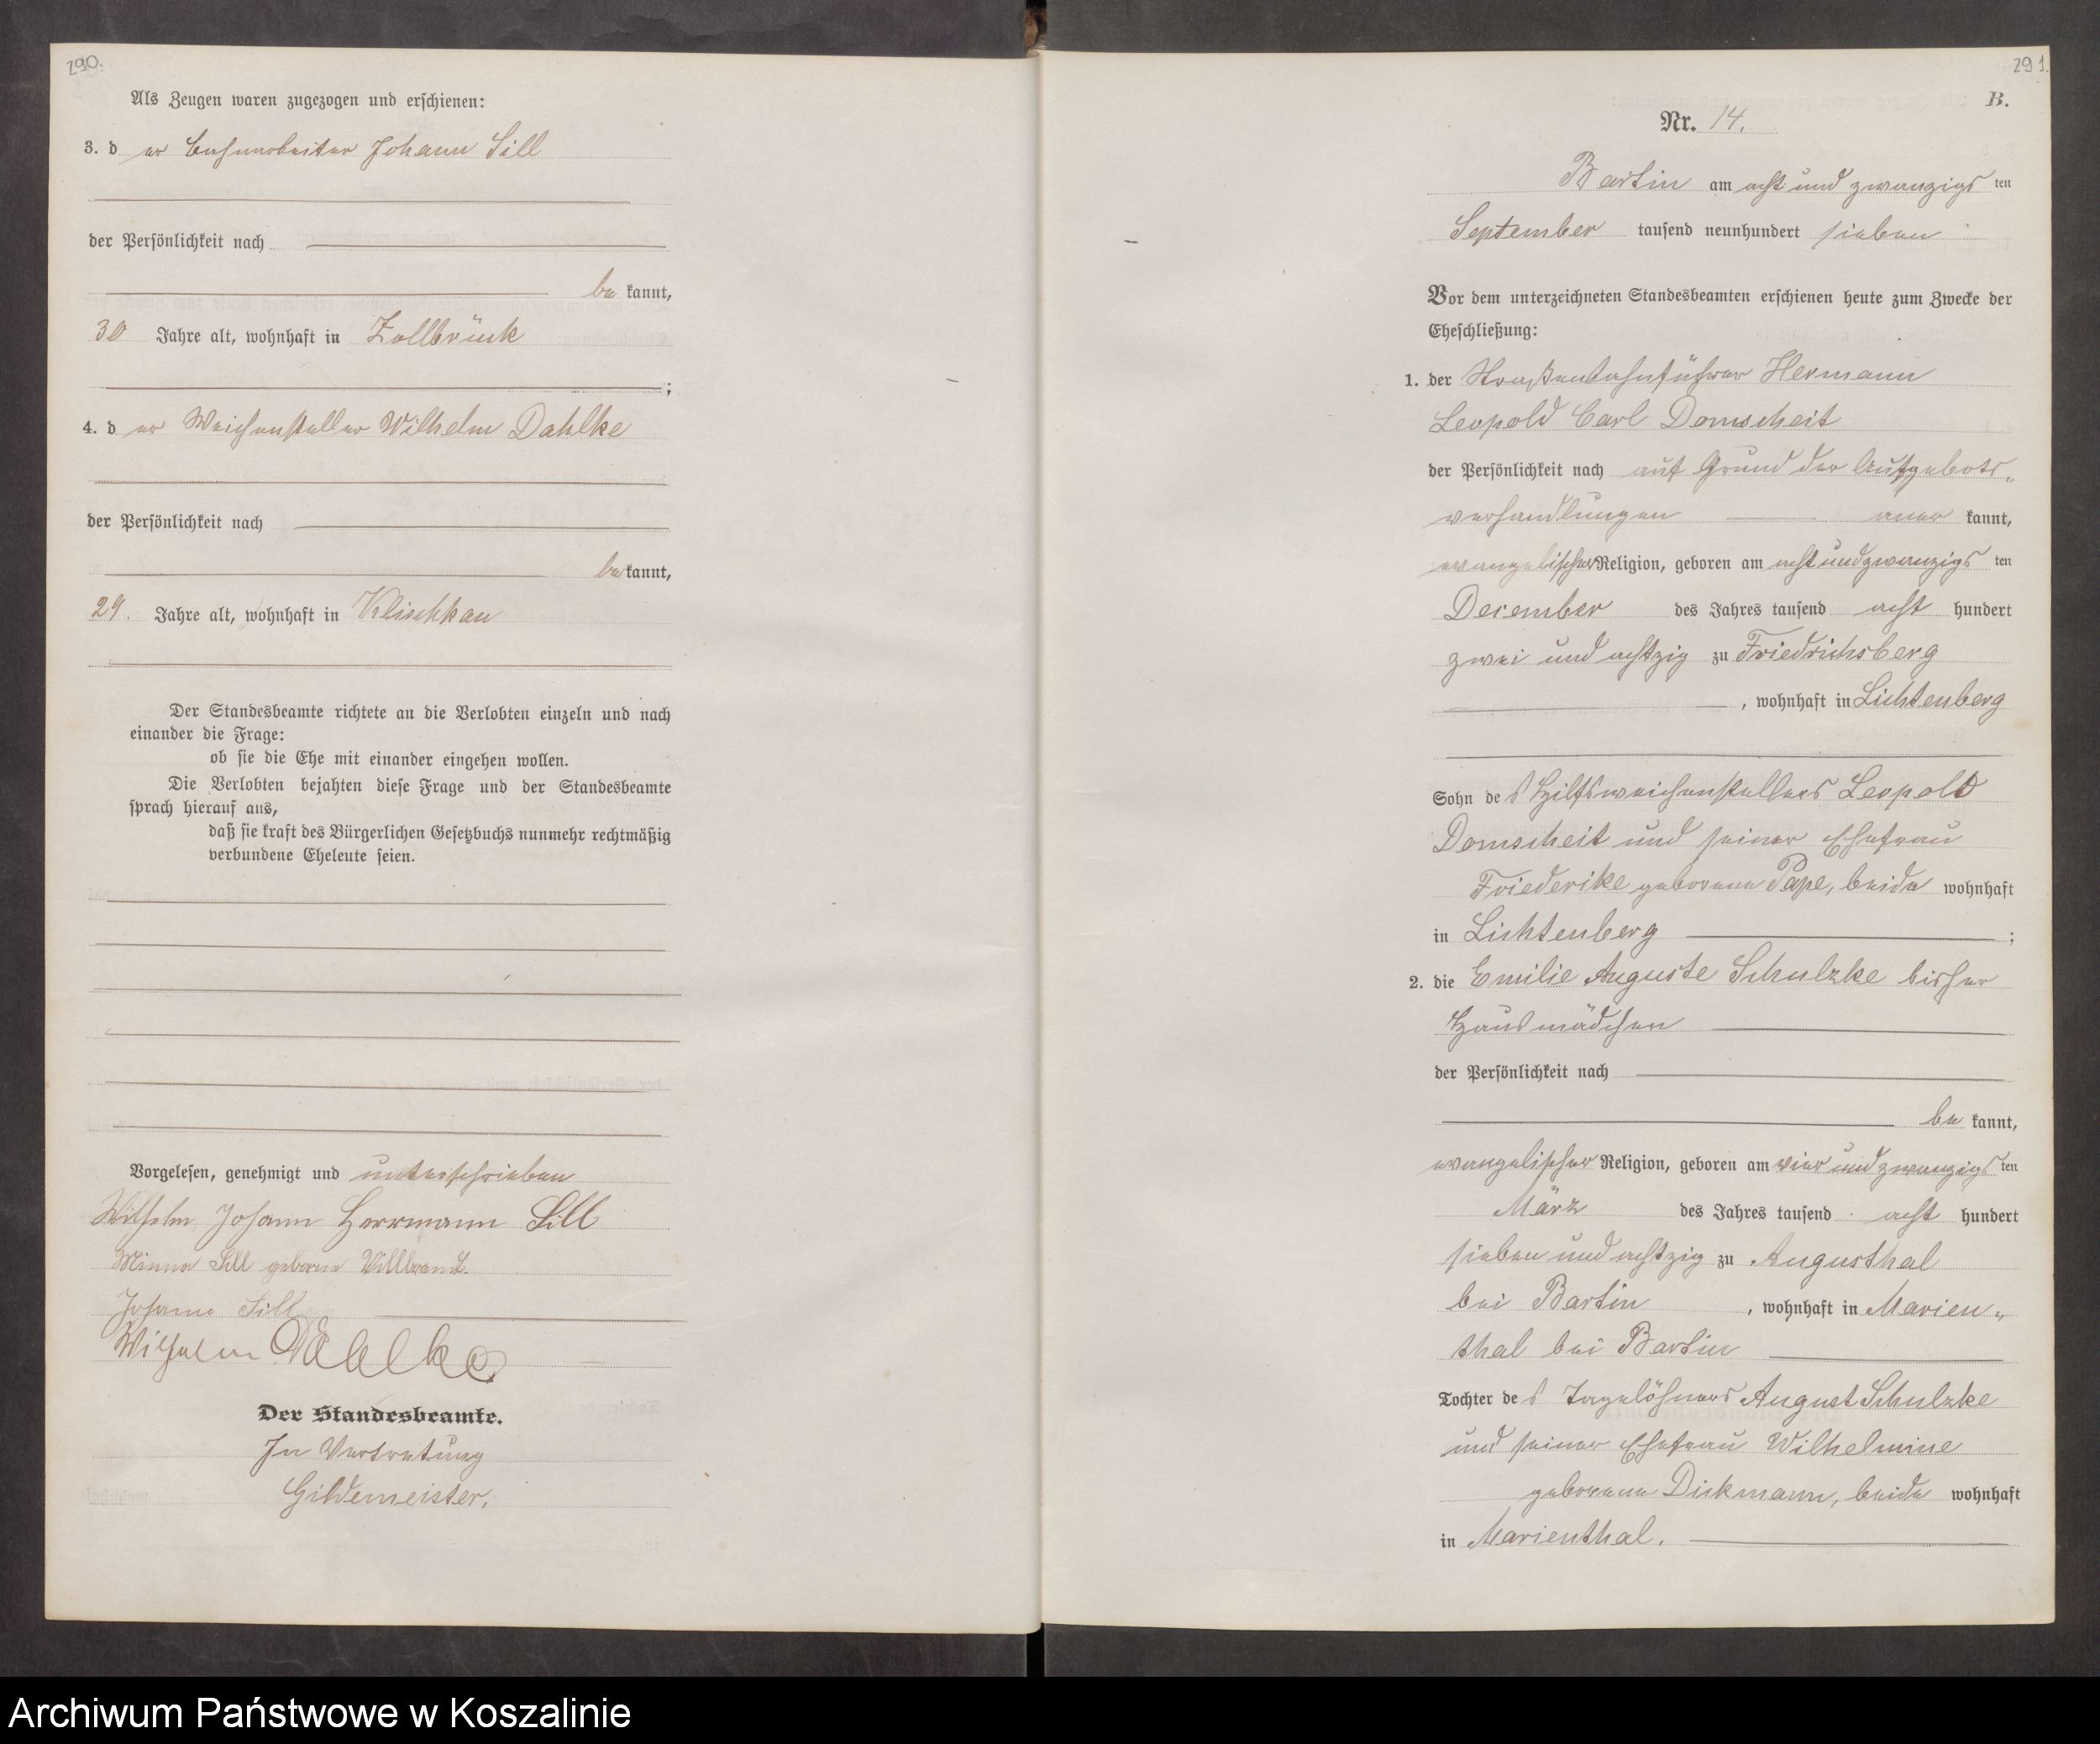 290.
Als Zeugen waren zugezogen und erschienen:
3. d er Bahnarbeiter Johann Sill
der Persönlichkeit nach
be kannt,
30 Jahre alt, wohnhaft in Zollbrück
;
4. d er Weichensteller Wilhelm Dahlke
der Persönlichkeit nach
be kannt,
29. Jahre alt, wohnhaft in Klischkau
Der Standesbeamte richtete an die Verlobten einzeln und nach
einander die Frage:
ob sie die Ehe mit einander eingehen wollen.
Die Verlobten bejahten diese Frage und der Standesbeamte
sprach hierauf aus,
daß sie kraft des Bürgerlichen Gesetzbuchs nunmehr rechtmäßig
verbundene Eheleute seien.
Vorgelesen, genehmigt und unterschrieben
Wilhelm Johann Herrmann Sill
Minna Sill geborne
Johann Sill
Wilhelm Dahlke
Der Standesbeamte.
In Vertretung
Gildemeister.
291.
B.
Nr. 14.
Bartin am acht und zwanzigs ten
September tausend neunhundert sieben
Vor dem unterzeichneten Standesbeamten erschienen heute zum Zwecke der
Eheschließung:
1. der Straßenbahnführer Hermann
Leopold Carl Domscheit
der Persönlichkeit nach auf Grund der Aufgebots„
verhandlungen aner kannt,
evangelischer Religion, geboren am acht und zwanzigs ten
December des Jahres tausend acht hundert
zwei und achtzig zu Friedrichsberg
, wohnhaft in Lichtenberg
Sohn de s Hilfsweichenstellers Leopold
Domscheit und seiner Ehefrau
Friederike geborene Pape, beide wohnhaft
in Lichtenberg ;
2. die Emilie Auguste Schulzke bisher
Hausmädchen
der Persönlichkeit nach
be kannt,
evangelischer Religion, geboren am vier und zwanzigs ten
März des Jahres tausend acht hundert
sieben und achtzig zu Augusthal
bei Bartin , wohnhaft in Marien„
thal bei Bartin
Tochter de s Tagelöhners August Schulzke
und seiner Ehefrau Wilhelmine
geborene Dickmann, beide wohnhaft
in Marienthal.
Archiwum Państwowe w Koszalinie